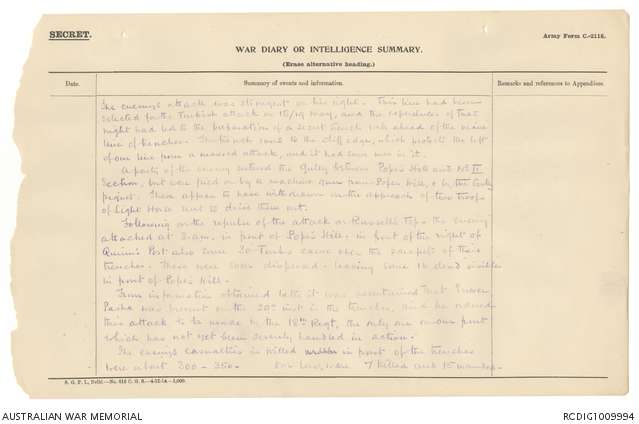 SECRET.
Army Form C.-2118.
WAR DIARY OR INTELLIGENCE SUMMARY.
(Erase alternative heading.)
Date.
Summary of events and information.
Remarks and references to Appendices.
The enemy's attack was strongest on his right. This line had been
selected for the Turkish attack on 18/19 May, and the experience of that
night had led to the preparation of a secret trench ahead of the main
line of trenches. This trench runs to the cliff edge, which protects the left
of our line from a massed attack, and it had some men in it.
A party of the enemy entered the Gully between Pope's Hill and No
Section, but were fired on by a machine gun from Pope's Hill, & by the Gully
piquet. These appear to have withdrawn on the approach of two troops
of Light Horse sent to drive them out.
Following on the repulse of the attack on Russell's Top the enemy
attacked at 3 a.m. in front of Pope's Hill. In front of the right of
Quinn's Post also some 30 Turks came over the parapets of their
trenches. These were soon dispersed leaving some 12 dead visible
in front of Pope's Hill.
From information obtained later it was ascertained that Enver
Pasha was present on the 29th inst in the trenches, and he ordered
this attack to be made by the 18th Regt, the only one on our front
which has not yet been severely handled in action.
The enemy's casualties in killed in front of the trenches
were about 300 - 350. Our loss, were 7 killed and 15 wounded.
S. G. P. I., Delhi.
AUSTRALIAN WAR MEMORIAL
RCDIG1009994